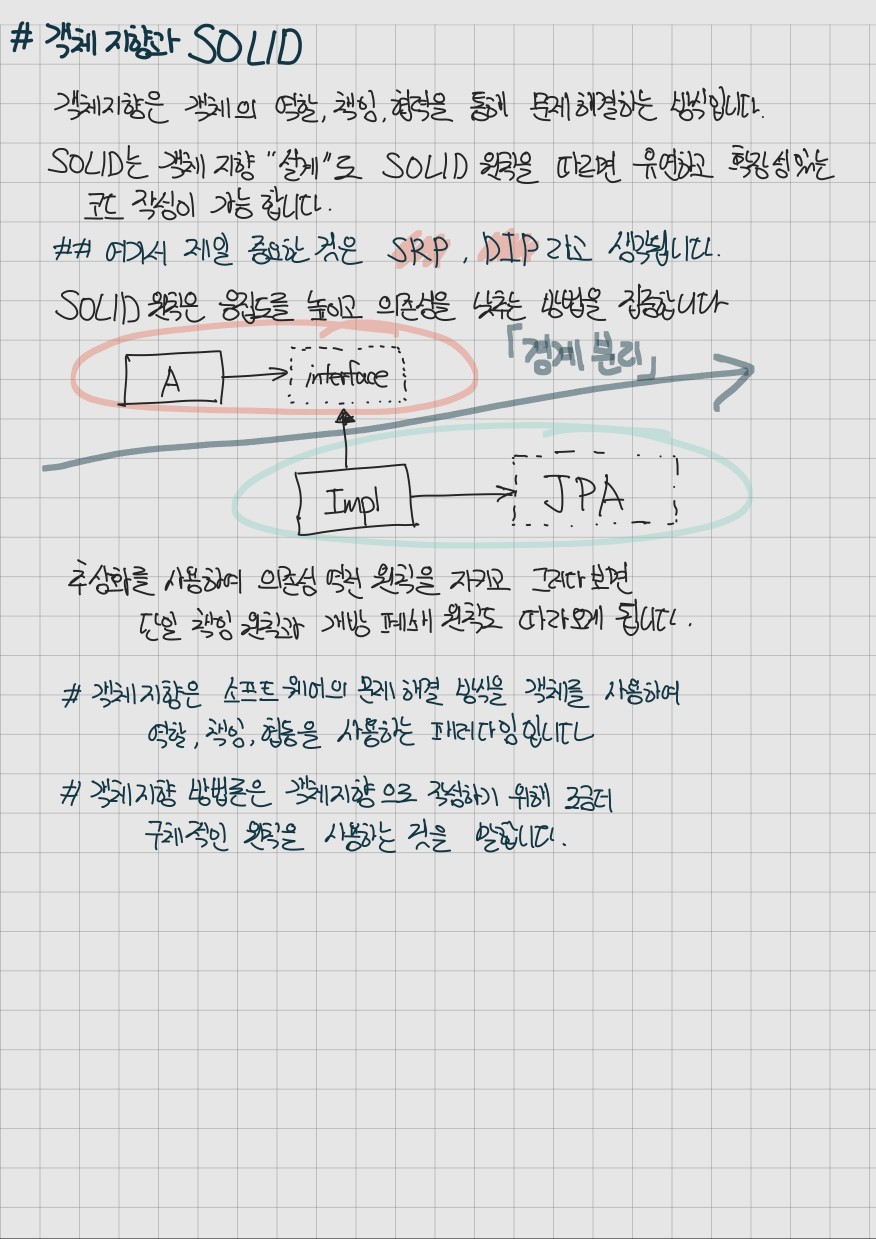 # 객체 지향과 SOLID
객체지향은 객체의 역할, 책임, 협력을 통해 문제해결하는 방식입니다.
SOLID는 객체 지향 "설계"로 SOLID 원칙을 따르면 유연하고 확장성있는
코드 작성이 가능 합니다.
## 여기서 제일 중요한 것은 SRP, DIP 라고 생각됩니다.
SOLID 원칙은 응집도를 높이고 의존성을 낮추는 방법을 집중합니다
「경계 분리」
A
interface
Impl
JPA
추상화를 사용하여 의존성 역전 원칙을 지키고 그러다보면
단일 책임 원칙과 개방 폐쇄 원칙도 따라오게 됩니다.
# 객체지향은 소프트웨어의 문제해결 방식을 객체를 사용하여
역할, 책임, 협동을 사용하는 패러다임입니다
# 객체지향 방법론은 객체지향으로 작성하기 위해 조금더
구체적인 원칙을 사용하는 것을 말합니다.